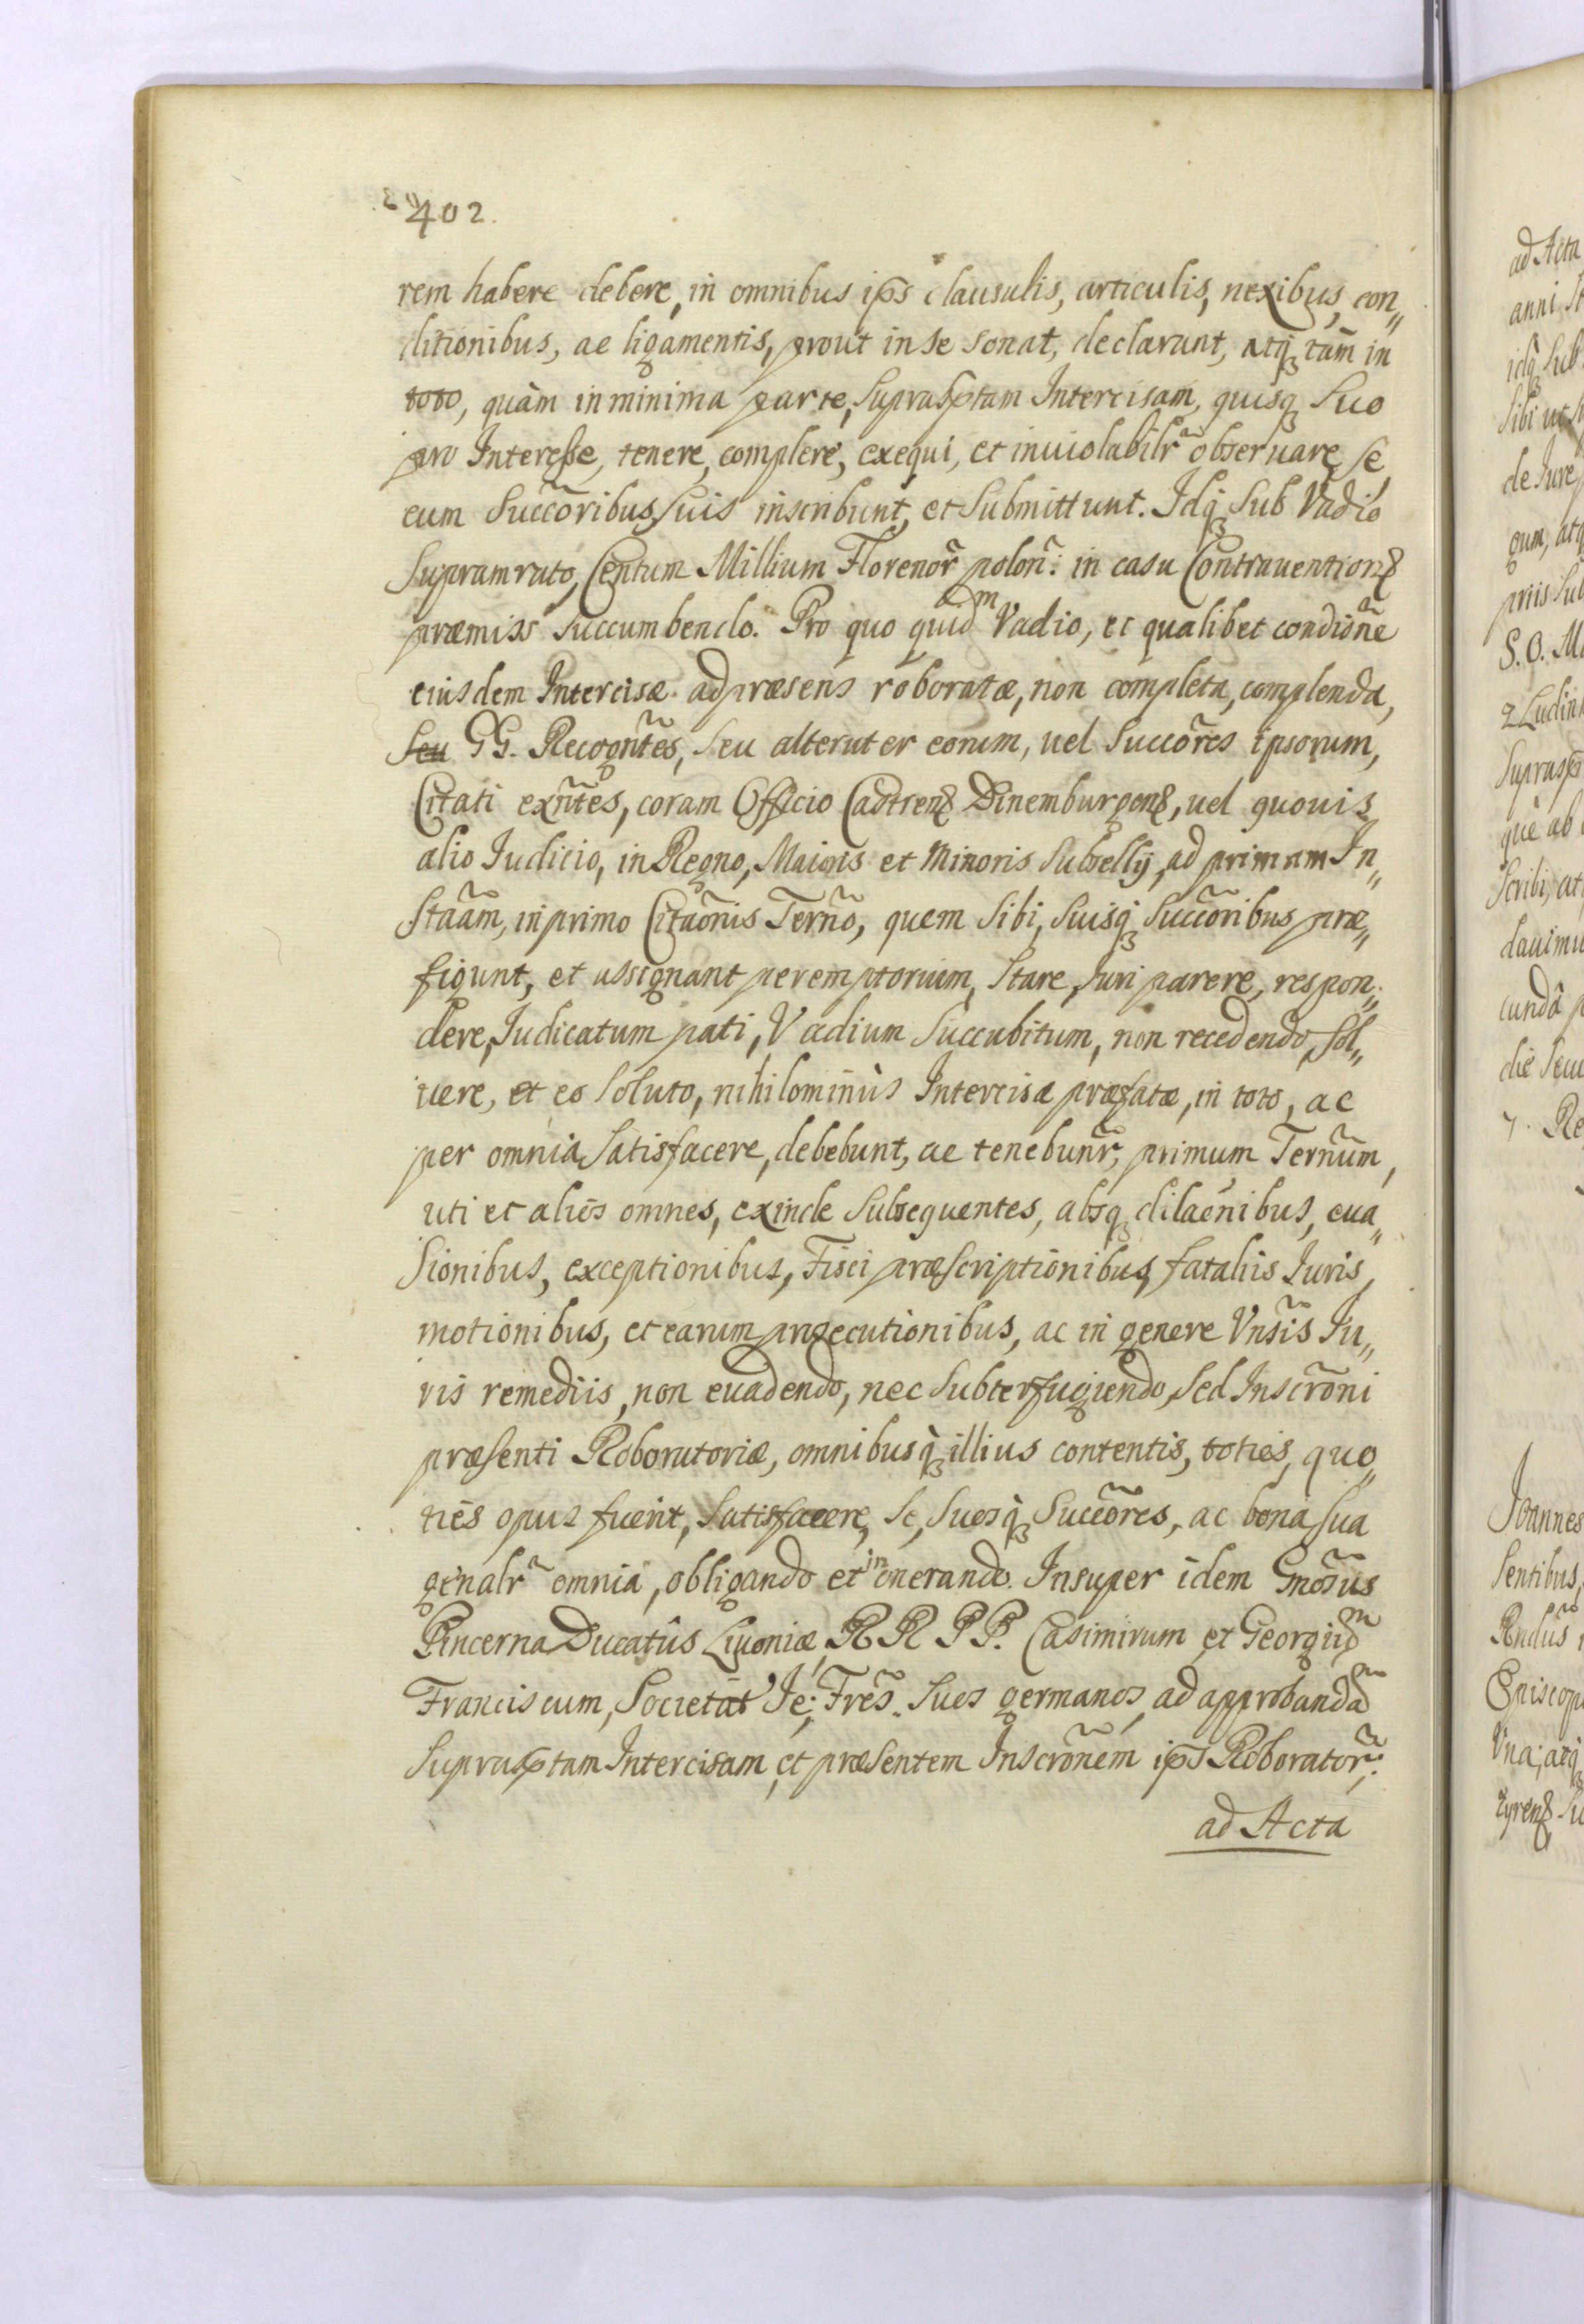 402.
rem habere debere, in omnibus ip̃s clausulis, articulis, nexibus, con„
ditionibus, ac ligamentis, prout in se sonat, declarant, atq́ʒ tam̃ in
toto, quàm in minima parte, supraSp̃tam Intercisam, quisqʒ Suo
pro Interesse, tenere, complere, exequi, et inuiolabilr̃ obseruare, Se
cum Succõribus Suis inscribunt, et Submittunt. Idq́ʒ Sub Vadio
Supramrato, Centum Millium Florenor̃ poloñ: in casu Contrauention̄ȝ
præmiss Succumbendo. Pro quo quid̃m Vadio, et qualibet condiõne
eiusdem Intercisæ ad præsens roboratæ, non completa, complenda,
Seu GG. Recogñtes, Seu alteruter eorum, uel Succõres ipsorum,
Citati exñtes, coram Officio Castrenȝ Dinemburgenȝ, uel quouis
alio Iudicio, in Regno, Maioris et Minoris Subsellij, ad primam In„
Stãam, in primo Citãonis Terño, quem Sibi, Suisq́ʒ Succõribus præ„
figunt, et assignant peremptorium, Stare, Iuri parere, respon„
dere, Iudicatum pati, Vadium Succubitum, non recedendo, Sol„
uere, et eo Soluto, nihilominùs Intercisæ præfatæ, in toto, ac
per omnia Satisfacere, debebunt, ac tenebunr̃, primum Terñum,
uti et aliós omnes, exinde Subsequentes, absqʒ dilaẽnibus, eua„
Sionibus, exceptionibus, Fisci præScriptionibus, fataliis Iuris,
motionibus, et earum prosecutionibus, ac in genere Vñsis Iu„
ris remediis, non euadendo, nec Subterfugiendo, Sed Inscrõni
præsenti Roboratoriæ, omnibusq́ʒ illius contentis, toties, quo„
ties opus fuerit, Satisfacere, Se, Suosq́ʒ Succõres, ac bona Sua
gẽnalr̃ omnia, obligando et inonerando. Insuper idem Gnõsus
Pincerna Ducatûs Liuoniæ, RR PP. Casimirum et Georgiũm
Franciscum, Societāt Ie: Frẽs. Suos germanos, ad approbandãm
Suprasp̃tam Intercisam, et præsentem Inscrõnem ip̃s Roborator̃:
ad Acta